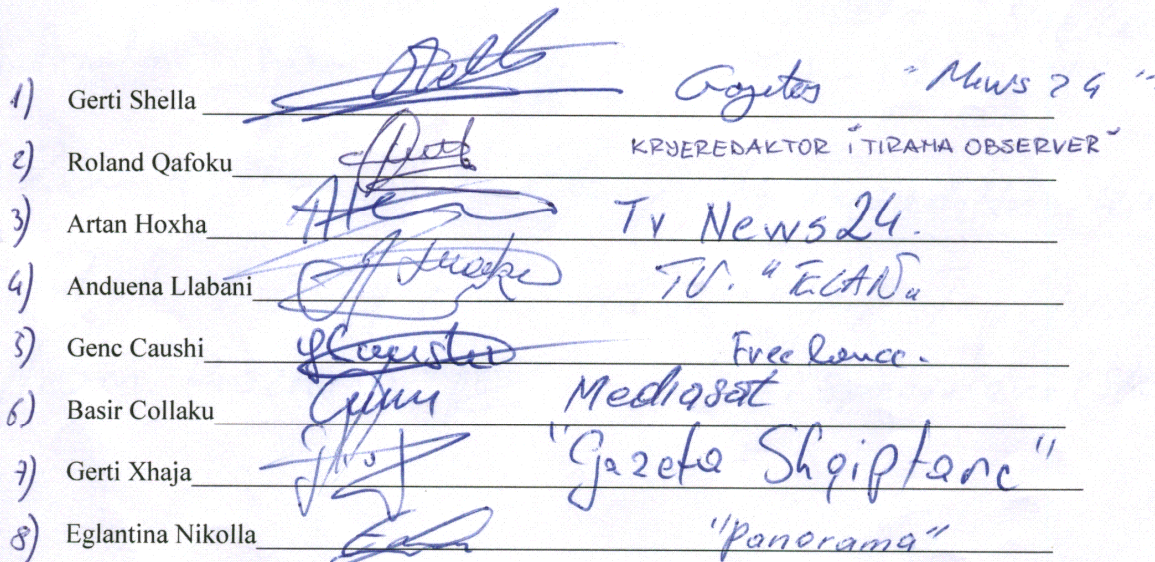 1) Gerti Shella Gazetar "News 24"
2) Roland Qafoku KRYEREDAKTOR i "TIRANA OBSERVER"
3) Artan Hoxha Tv News24.
4) Anduena Llabani TV.
5) Genc Caushi Free lance.
6) Basir Collaku Mediasat
7) Gerti Xhaja "Gazeta Shqiptare"
8) Eglantina Nikolla "Panorama"